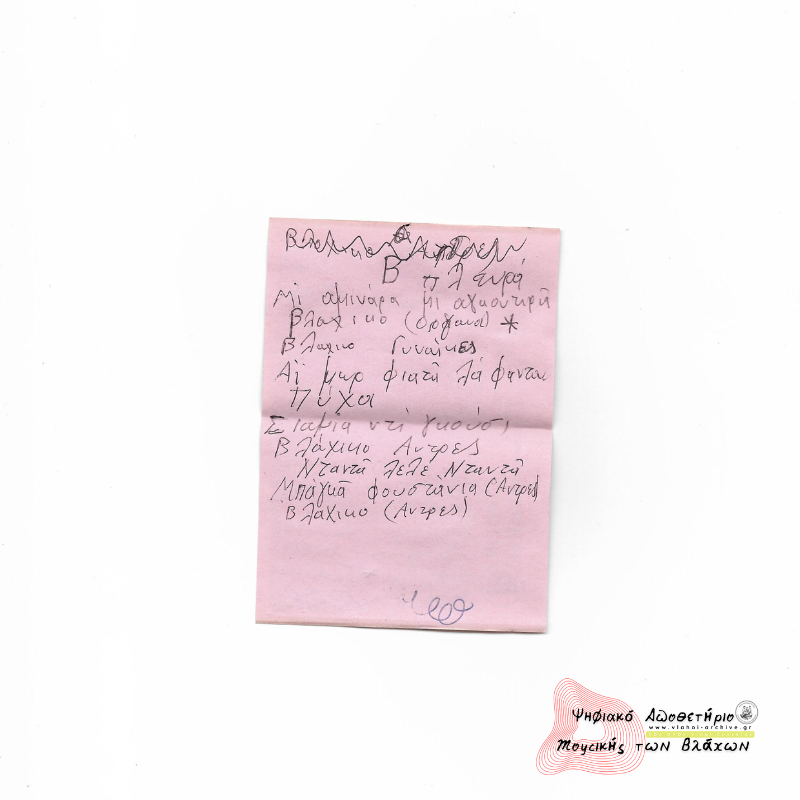 Βλαχικο Αντρες
Β πλευρά
Μι αμινάρα μι αγκουντιρη
Βλαχικο (οργανα) *
Βλαχικο Γυναίκες
Αϊ μωρ φιατη λά φαντου
Πυχα
Σταμία ντι γκούσι
Βλάχικο Αντρες
Νταντη λελε Νταντη
Μπάγκα φουστάνια (Αντρες)
Βλαχικο (Αντρες)
Ψηφιακό Αποθετήριο
www.vlahoi-archive.gr
Μουσικής των Βλάχων